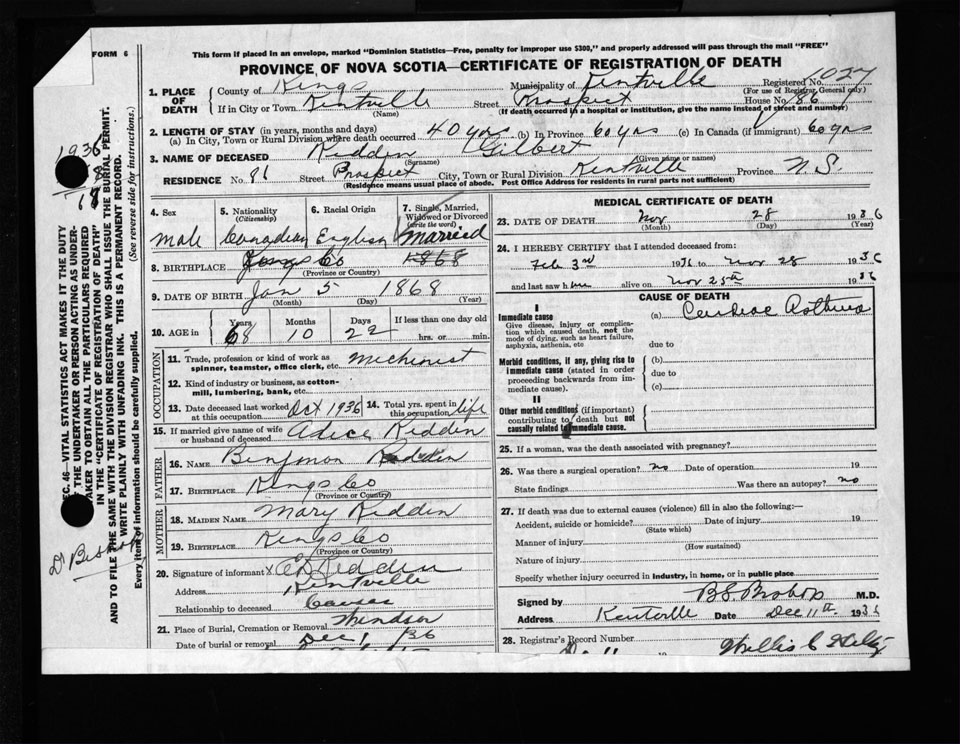 FORM 6
This form if placed in an envelope, marked "Dominion Statistics—Free, penalty for improper use $300," and properly addressed will pass through the mail "FREE"
PROVINCE OF NOVA SCOTIA—CERTIFICATE OF REGISTRATION OF DEATH
1. PLACE OF DEATH
County of Kings
Municipality of Kentville
Registered No. 027
(For use of Registrar General only)
If in City or Town Kentville
(Name)
Street Prospect
House No. 86
(If death occurred in a hospital or institution, give the name instead of street and number)
2. LENGTH OF STAY (in years, months and days)
(a) In City, Town or Rural Division where death occurred 40 yrs (b) In Province 60 yrs (c) In Canada (if immigrant) 60 yrs
3. NAME OF DECEASED Reddin Gilbert
(Surname) (Given name or names)
RESIDENCE No. 86 Street Prospect City, Town or Rural Division Kentville Province N.S.
(Residence means usual place of abode. Post Office Address for residents in rural parts not sufficient)
4. Sex
Male
5. Nationality
(Citizenship)
Canadian
6. Racial Origin
English
7. Single, Married, Widowed or Divorced
(write the word)
Married
8. BIRTHPLACE Kings Co 1868
(Province or Country)
9. DATE OF BIRTH Jan 5 1868
(Month) (Day) (Year)
10. AGE in
Years Months Days If less than one day old
68 10 22 hrs. or min.
OCCUPATION
11. Trade, profession or kind of work as spinner, teamster, office clerk, etc. Mechinist
12. Kind of industry or business, as cotton-mill, lumbering, bank, etc.
13. Date deceased last worked at this occupation Oct 1936
14. Total yrs. spent in this occupation life
15. If married give name of wife or husband of deceased Reddin
FATHER
16. NAME Benjmon Reddin
17. BIRTHPLACE Kings Co
(Province or Country)
MOTHER
18. MAIDEN NAME Mary Reddin
19. BIRTHPLACE Kings Co
(Province or Country)
20. Signature of informant x Reddin
Address Kentville
Relationship to deceased
21. Place of Burial, Cremation or Removal Windsor
Date of burial or removal Dec 1 /36
MEDICAL CERTIFICATE OF DEATH
23. DATE OF DEATH Nov 28 1936
(Month) (Day) (Year)
24. I HEREBY CERTIFY that I attended deceased from:
Feb 3rd 1936 to Nov 28 1936
and last saw him alive on Nov 25th 1936
CAUSE OF DEATH
I
Immediate cause
Give disease, injury or complication which caused death, not the mode of dying, such as heart failure, asphyxia, asthenia, etc
(a) Cardiac Asthma
due to
Morbid conditions, if any, giving rise to immediate cause (stated in order proceeding backwards from immediate cause).
(b)
due to
(c)
II
Other morbid conditions (if important) contributing to death but not causally related to immediate cause.
25. If a woman, was the death associated with pregnancy?
26. Was there a surgical operation? no Date of operation 19
State findings Was there an autopsy? no
27. If death was due to external causes (violence) fill in also the following:—
Accident, suicide or homicide? Date of injury 19
(State which)
Manner of injury
(How sustained)
Nature of injury
Specify whether injury occurred in industry, in home, or in public place
Signed by B.S. Bishop M.D.
Address Kentville Date Dec 11th 1936
28. Registrar's Record Number
Dec 11 19 Willis C
SEC. 46—VITAL STATISTICS ACT MAKES IT THE DUTY
THE UNDERTAKER OR PERSON ACTING AS UNDER-
TAKER TO OBTAIN ALL THE PARTICULARS REQUIRED
IN THE "CERTIFICATE OF REGISTRATION OF DEATH"
AND TO FILE THE SAME WITH THE DIVISION REGISTRAR WHO SHALL ISSUE THE BURIAL PERMIT.
WRITE PLAINLY WITH UNFADING INK. THIS IS A PERMANENT RECORD.
Every item of information should be carefully supplied. (See reverse side for instructions.)
1936